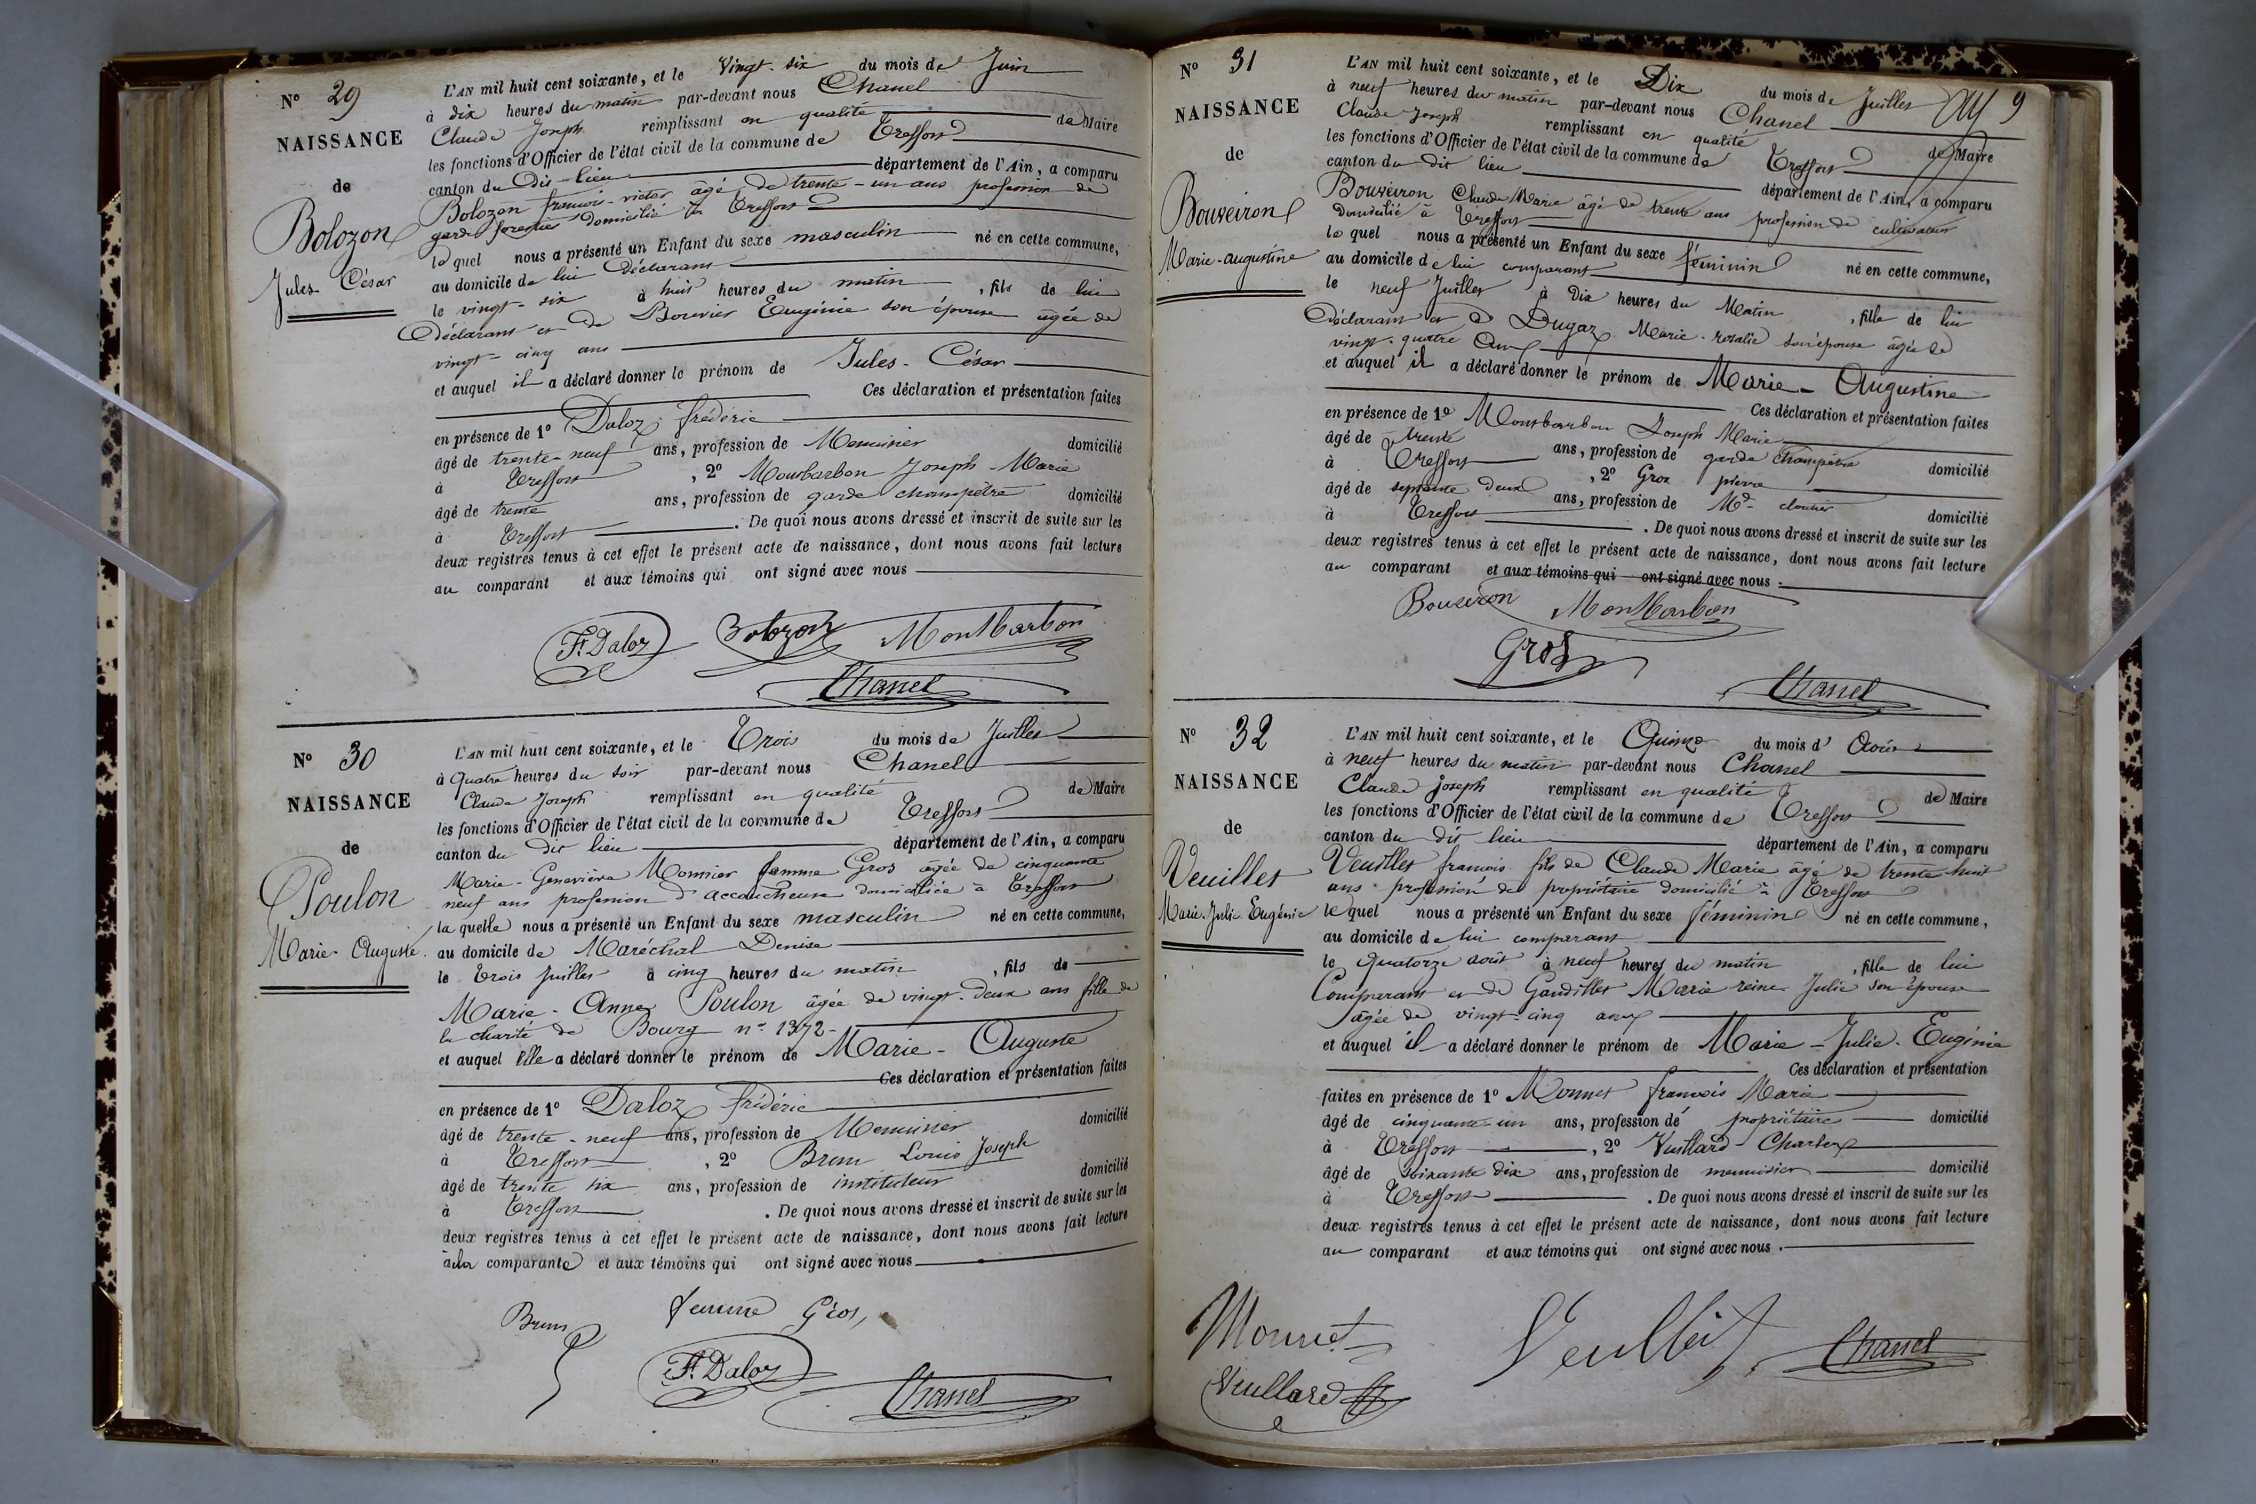 N° 29
NAISSANCE
de
Bolozon
Jules César
L'AN mil huit cent soixante, et le Vingt-six du mois de Juin
à dix heures du matin par-devant nous Chanel
Claude Joseph remplissant en qualité de Maire
les fonctions d'Officier de l'état civil de la commune de Treffort
canton du dit-lieu département de l'Ain, a comparu
Bolozon françois-victor âgé de trente-un ans profession de
garde forestier domicilié à Treffort
le quel nous a présenté un Enfant du sexe masculin né en cette commune,
au domicile de lui Déclarant
le vingt-six à huit heures du matin, fils de lui
Déclarant et de Bouvier Eugénie son épouse âgée de
vingt-cinq ans
et auquel il a déclaré donner le prénom de Jules-César
Ces déclaration et présentation faites
en présence de 1° Daloz frédéric
âgé de trente-neuf ans, profession de Menuisier domicilié
à Treffort, 2° Montbarbon Joseph-Marie
âgé de trente ans, profession de garde champêtre domicilié
à Treffort. De quoi nous avons dressé et inscrit de suite sur les
deux registres tenus à cet effet le présent acte de naissance, dont nous avons fait lecture
au comparant et aux témoins qui ont signé avec nous
F. Daloz Bolozon Montbarbon
Chanel
N° 30
NAISSANCE
de
Poulon
Marie-Auguste
L'AN mil huit cent soixante, et le Trois du mois de Juillet
à quatre heures du soir par-devant nous Chanel
Claude Joseph remplissant en qualité de Maire
les fonctions d'Officier de l'état civil de la commune de Treffort
canton du dit lieu département de l'Ain, a comparu
Marie-Geneviève Monnier femme Gros âgée de cinquante
neuf ans profession d'accoucheuse domiciliée à Treffort
la quelle nous a présenté un Enfant du sexe masculin né en cette commune,
au domicile de Maréchal Denise
le trois juillet à cinq heures du matin, fils de
Marie-Anne Poulon âgée de vingt-deux ans fille de
la charité de Bourg n° 1372
et auquel elle a déclaré donner le prénom de Marie-Auguste
Ces déclaration et présentation faites
en présence de 1° Daloz frédéric
âgé de trente-neuf ans, profession de Menuisier domicilié
à Treffort, 2° Brun Louis Joseph
âgé de trente six ans, profession de instituteur domicilié
à Treffort. De quoi nous avons dressé et inscrit de suite sur les
deux registres tenus à cet effet le présent acte de naissance, dont nous avons fait lecture
à la comparante et aux témoins qui ont signé avec nous
Brun femme Gros
F. Daloz
Chanel
9
N° 31
NAISSANCE
de
Bouveiron
Marie-augustine
L'AN mil huit cent soixante, et le Dix du mois de Juillet
à neuf heures du matin par-devant nous Chanel
Claude Joseph remplissant en qualité de Maire
les fonctions d'Officier de l'état civil de la commune de Treffort
canton du dit lieu département de l'Ain, a comparu
Bouveiron Claude Marie âgé de trente ans profession de cultivateur
domicilié à Treffort
le quel nous a présenté un Enfant du sexe féminin né en cette commune,
au domicile de lui comparant
le neuf Juillet à Dix heures du Matin, fille de lui
Déclarant et de Dugaz Marie-rosalie son épouse âgée de
vingt-quatre ans
et auquel il a déclaré donner le prénom de Marie-Augustine
Ces déclaration et présentation faites
en présence de 1° Montbarbon Joseph Marie
âgé de trente ans, profession de garde champêtre domicilié
à Treffort, 2° Gros pierre
âgé de septante deux ans, profession de Md cloutier domicilié
à Treffort. De quoi nous avons dressé et inscrit de suite sur les
deux registres tenus à cet effet le présent acte de naissance, dont nous avons fait lecture
au comparant et aux témoins qui ont signé avec nous.
Bouveiron Montbarbon
Gros
Chanel
N° 32
NAISSANCE
de
Veuillet
Marie-Julie Eugénie
L'AN mil huit cent soixante, et le Quinze du mois d'Août
à neuf heures du matin par-devant nous Chanel
Claude Joseph remplissant en qualité de Maire
les fonctions d'Officier de l'état civil de la commune de Treffort
canton du dit lieu département de l'Ain, a comparu
Veuillet françois fils de Claude Marie âgé de trente-huit
ans profession de propriétaire domicilié à Treffort
le quel nous a présenté un Enfant du sexe féminin né en cette commune,
au domicile de lui comparant
le Quatorze août à neuf heures du matin, fille de lui
Comparant et de Gandillet Marie reine Julie son épouse
âgée de vingt-cinq ans
et auquel il a déclaré donner le prénom de Marie-Julie-Eugénie
Ces déclaration et présentation
faites en présence de 1° Monnet françois Marie
âgé de cinquante-un ans, profession de propriétaire domicilié
à Treffort, 2° Vuillard Charles
âgé de soixante dix ans, profession de menuisier domicilié
à Treffort. De quoi nous avons dressé et inscrit de suite sur les
deux registres tenus à cet effet le présent acte de naissance, dont nous avons fait lecture
au comparant et aux témoins qui ont signé avec nous.
Monnet Veuillet Chanel
Vuillard